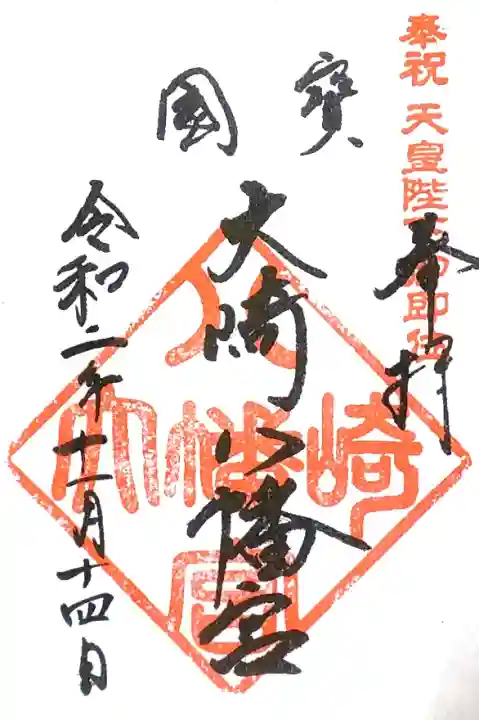 國寶
奉祝 天皇陛下御即位
奉拝
大崎八幡宮
令和二年十一月十四日
大崎八幡宮